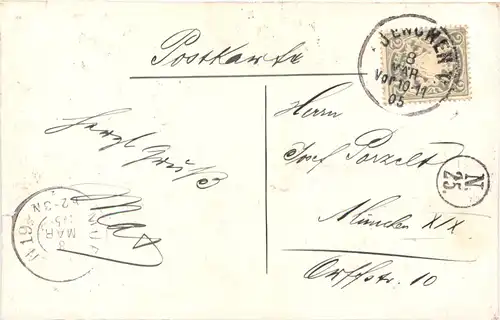 Postkarte
MÜNCHEN 2
8
MÄR
Vor 10-11
05
Herrn
Josef Porzelt
München XIX
Orffstr. 10
N
25.
Herzl. Gruß
Max
8
MÄR.
2-3N